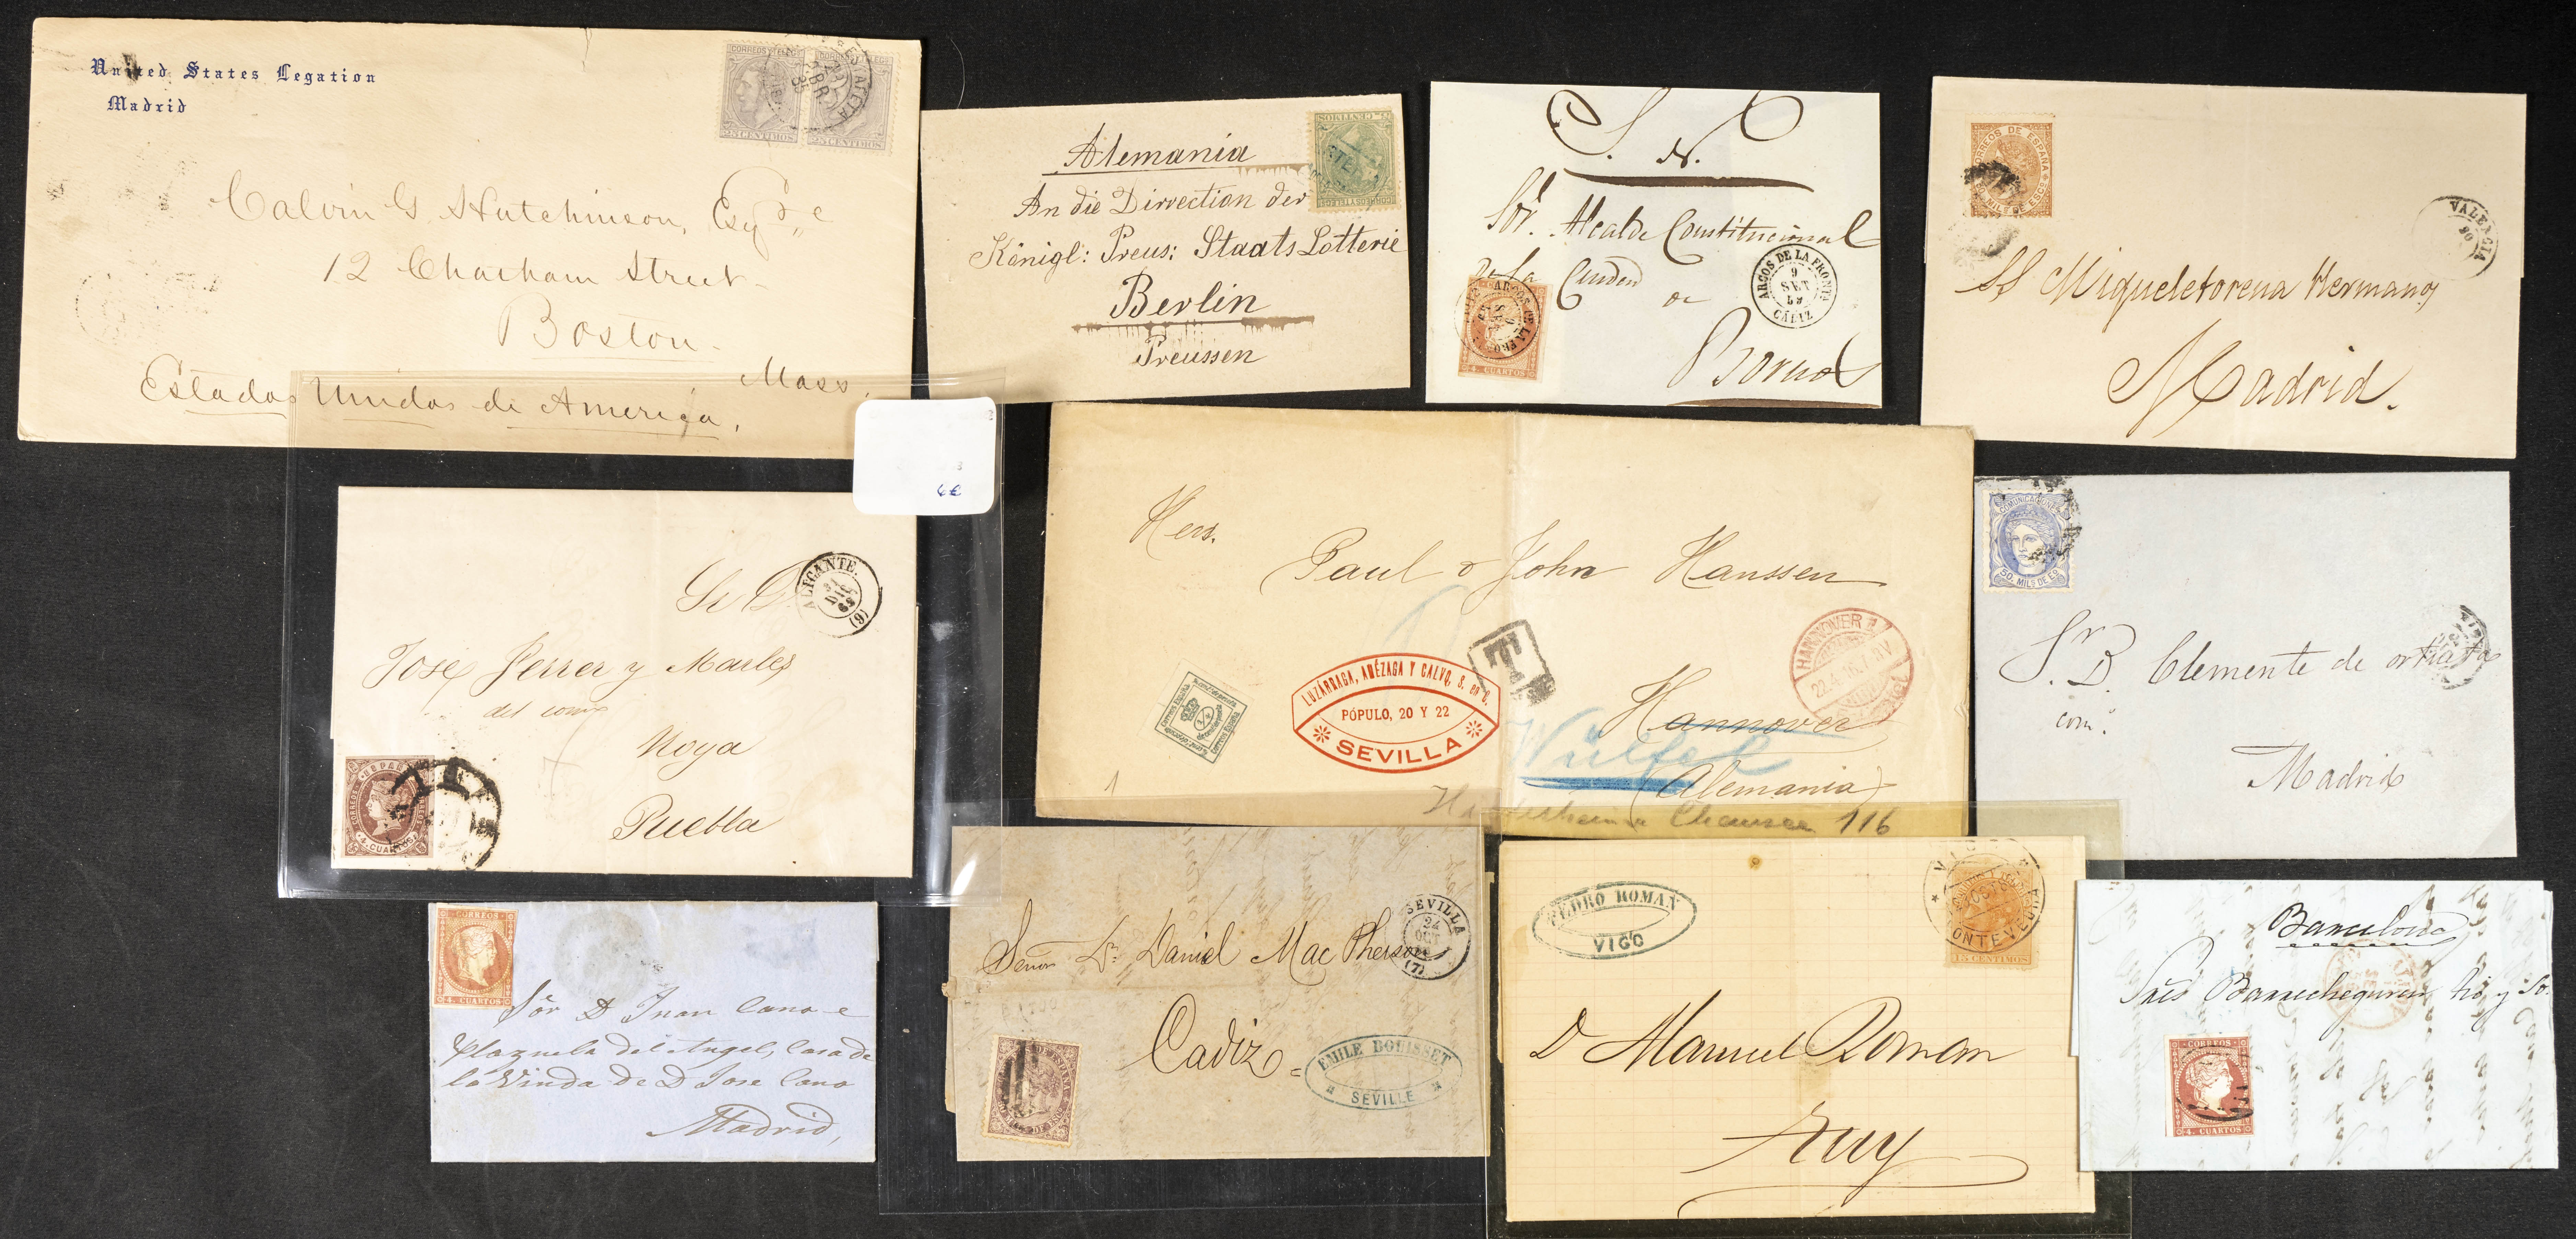 United States Legation
Madrid
CORREOS Y TELEGS
25 CENTIMOS
CORREOS Y TELEGS
25 CENTIMOS
Calvin G. Hutchinson, Esqre
12 Chatham Street
Boston
Mass.
Estados Unidos de America,
Alemania
An die Direction der
Königl: Preus: Staats Lotterie
Berlin
Preussen
CORREOS Y TELEGS
CENTIMOS
S. N.
Sor. Alcalde Constitucional
De la Ciudad de
Bornos
4. CUARTOS
ARCOS DE LA FRONTA
9
SET
CÁDIZ
CORREOS DE ESPAÑA
MILS DE ESCO
VALENCIA
SS Miqueletorena Hermanos
Madrid.
6€
ALICANTE.
31
DIC
63
(9)
Sr D.
Jose Ferrer y Marles
del com
Noya
Puebla
CORREOS
4. CUARTOS
Hers.
Paul & John Hanssen
Hannover
Wülfel
(Alemania)
116
T
HANNOVER
LUZÁRRAGA, AUÉZAGA Y CALVO, S. en C.
PÓPULO, 20 Y 22
SEVILLA
1/4
Correos España
1
COMUNICACIONES
50. MILS DE EO
Sr. D. Clemente de
com.
Madrid
CORREOS
4. CUARTOS
Sor D Juan Cano e
Plazuela del Angel, Casa de
la Vinda de D Jose Cano
Madrid,
SEVILLA
24
OCT
(7)
Señor Dn Daniel Mac Pherson
Cadiz
EMILE BOUISSET
SEVILLE
PEDRO ROMAN
VIGO
VIGO
PONTEVEDRA
15 CENTIMOS
D Manuel Roman
Tuy
Barcelona
CORREOS
4. CUARTOS